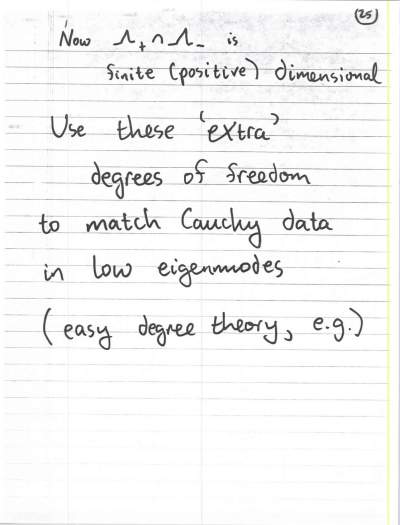 (25)
Now Λ₊ ∩ Λ₋ is
finite (positive) dimensional
Use these 'extra'
degrees of freedom
to match Cauchy data
in low eigenmodes
(easy degree theory, e.g.)